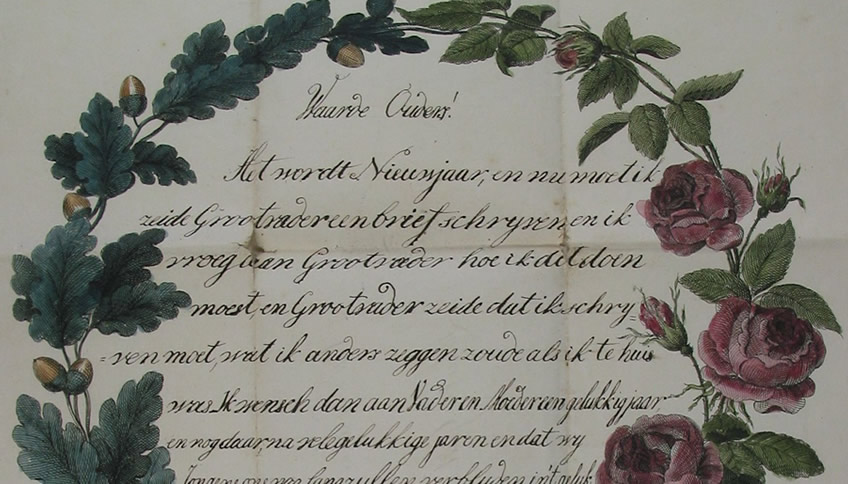 Waarde Ouders!
Het wordt Nieuwjaar, en nu moet ik
zeide Grootvader een brief schryven en ik
vroeg aan Grootvader hoe ik dit doen
moest en Grootvader zeide dat ik schry=
=ven moet, wat ik anders zeggen zoude als ik te huis
was. Ik wensch dan aan Vader en Moeder een gelukkig jaar,
en nog daar na vele gelukkige jaren en dat wy
Jongens ons nog lang zullen verblyden in't geluk